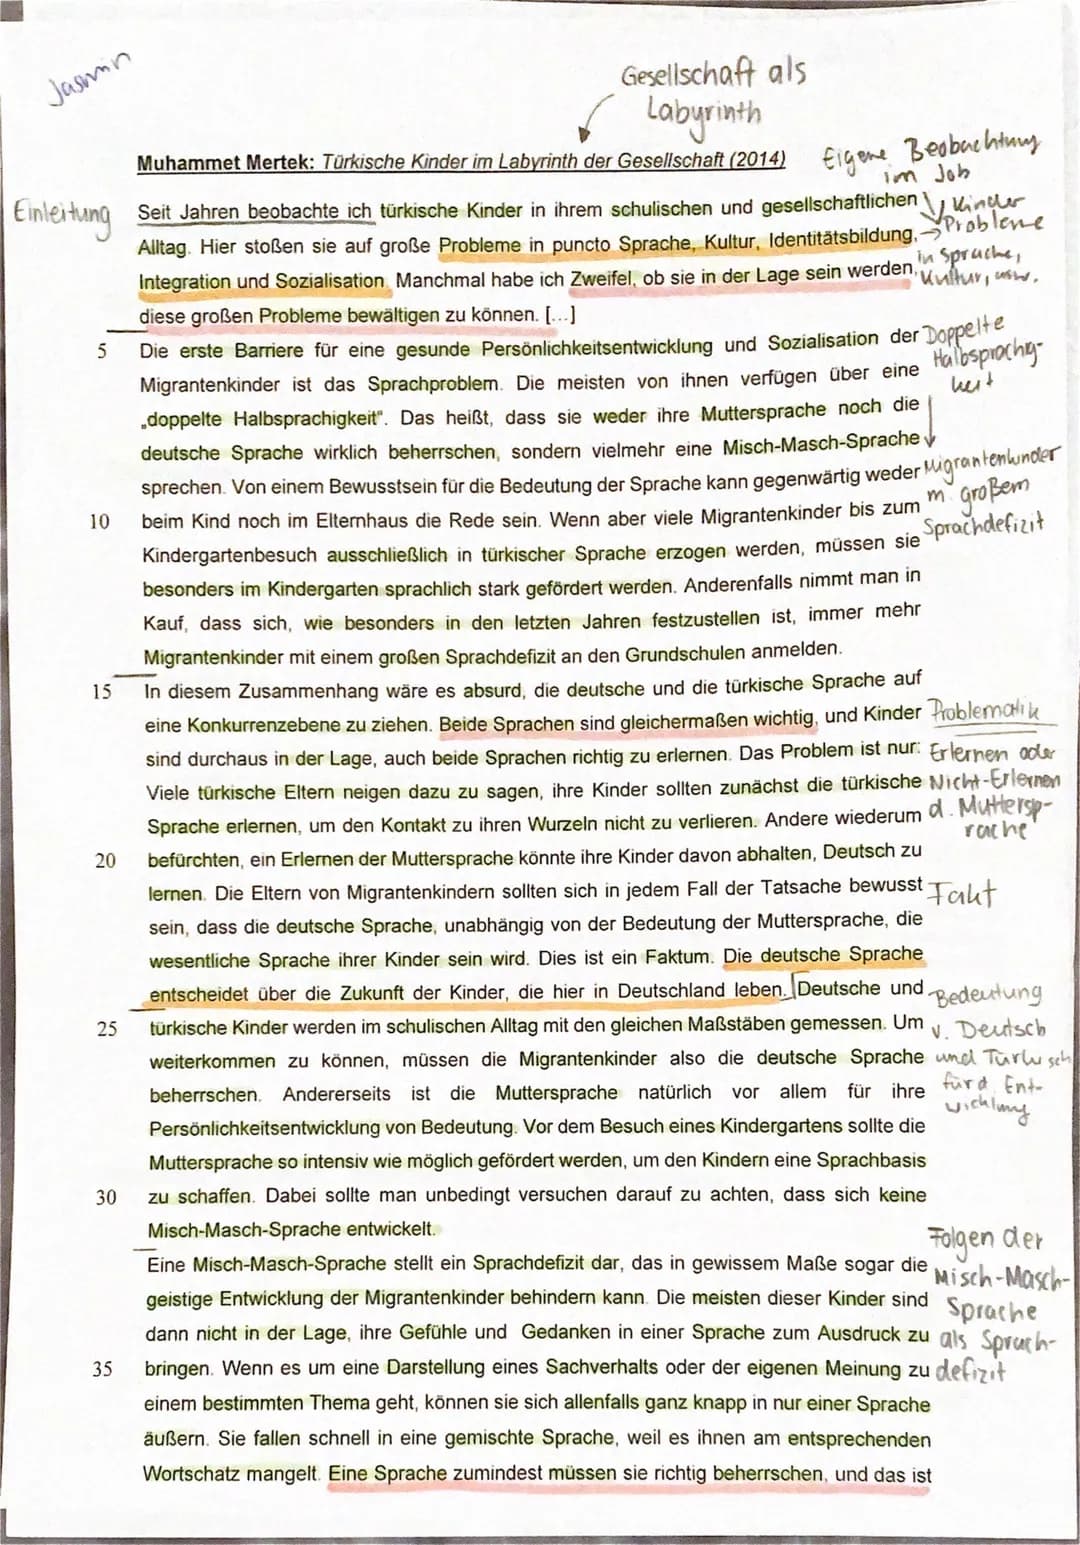 Jasmin
Gesellschaft als
Labyrinth
Muhammet Mertek: Türkische Kinder im Labyrinth der Gesellschaft (2014)
Eigene Beobachtung
im Job
Einleitung
Seit Jahren beobachte ich türkische Kinder in ihrem schulischen und gesellschaftlichen
Kinder
Alltag. Hier stoßen sie auf große Probleme in puncto Sprache, Kultur, Identitätsbildung,
→ Probleme
Integration und Sozialisation. Manchmal habe ich Zweifel, ob sie in der Lage sein werden,
in Sprache,
Kultur, usw.
diese großen Probleme bewältigen zu können. [...]
5 Die erste Barriere für eine gesunde Persönlichkeitsentwicklung und Sozialisation der
Doppelte
Migrantenkinder ist das Sprachproblem. Die meisten von ihnen verfügen über eine
Halbsprachig-
keit
„doppelte Halbsprachigkeit". Das heißt, dass sie weder ihre Muttersprache noch die
deutsche Sprache wirklich beherrschen, sondern vielmehr eine Misch-Masch-Sprache
sprechen. Von einem Bewusstsein für die Bedeutung der Sprache kann gegenwärtig weder
Migrantenkinder
10 beim Kind noch im Elternhaus die Rede sein. Wenn aber viele Migrantenkinder bis zum
m. großem
Kindergartenbesuch ausschließlich in türkischer Sprache erzogen werden, müssen sie
Sprachdefizit
besonders im Kindergarten sprachlich stark gefördert werden. Anderenfalls nimmt man in
Kauf, dass sich, wie besonders in den letzten Jahren festzustellen ist, immer mehr
Migrantenkinder mit einem großen Sprachdefizit an den Grundschulen anmelden.
15 In diesem Zusammenhang wäre es absurd, die deutsche und die türkische Sprache auf
eine Konkurrenzebene zu ziehen. Beide Sprachen sind gleichermaßen wichtig, und Kinder
Problematik
sind durchaus in der Lage, auch beide Sprachen richtig zu erlernen. Das Problem ist nur:
Erlernen oder
Viele türkische Eltern neigen dazu zu sagen, ihre Kinder sollten zunächst die türkische
Nicht-Erlernen
Sprache erlernen, um den Kontakt zu ihren Wurzeln nicht zu verlieren. Andere wiederum
d. Muttersp-
rache
20 befürchten, ein Erlernen der Muttersprache könnte ihre Kinder davon abhalten, Deutsch zu
lernen. Die Eltern von Migrantenkindern sollten sich in jedem Fall der Tatsache bewusst
Fakt
sein, dass die deutsche Sprache, unabhängig von der Bedeutung der Muttersprache, die
wesentliche Sprache ihrer Kinder sein wird. Dies ist ein Faktum. Die deutsche Sprache
entscheidet über die Zukunft der Kinder, die hier in Deutschland leben. Deutsche und
Bedeutung
25 türkische Kinder werden im schulischen Alltag mit den gleichen Maßstäben gemessen. Um
v. Deutsch
weiterkommen zu können, müssen die Migrantenkinder also die deutsche Sprache
und Türkisch
beherrschen. Andererseits ist die Muttersprache natürlich vor allem für ihre
für d. Ent-
wicklung
Persönlichkeitsentwicklung von Bedeutung. Vor dem Besuch eines Kindergartens sollte die
Muttersprache so intensiv wie möglich gefördert werden, um den Kindern eine Sprachbasis
30 zu schaffen. Dabei sollte man unbedingt versuchen darauf zu achten, dass sich keine
Misch-Masch-Sprache entwickelt.
Folgen der
Eine Misch-Masch-Sprache stellt ein Sprachdefizit dar, das in gewissem Maße sogar die
Misch-Masch-
geistige Entwicklung der Migrantenkinder behindern kann. Die meisten dieser Kinder sind
Sprache
dann nicht in der Lage, ihre Gefühle und Gedanken in einer Sprache zum Ausdruck zu
als Sprach-
35 bringen. Wenn es um eine Darstellung eines Sachverhalts oder der eigenen Meinung zu
defizit
einem bestimmten Thema geht, können sie sich allenfalls ganz knapp in nur einer Sprache
äußern. Sie fallen schnell in eine gemischte Sprache, weil es ihnen am entsprechenden
Wortschatz mangelt. Eine Sprache zumindest müssen sie richtig beherrschen, und das ist